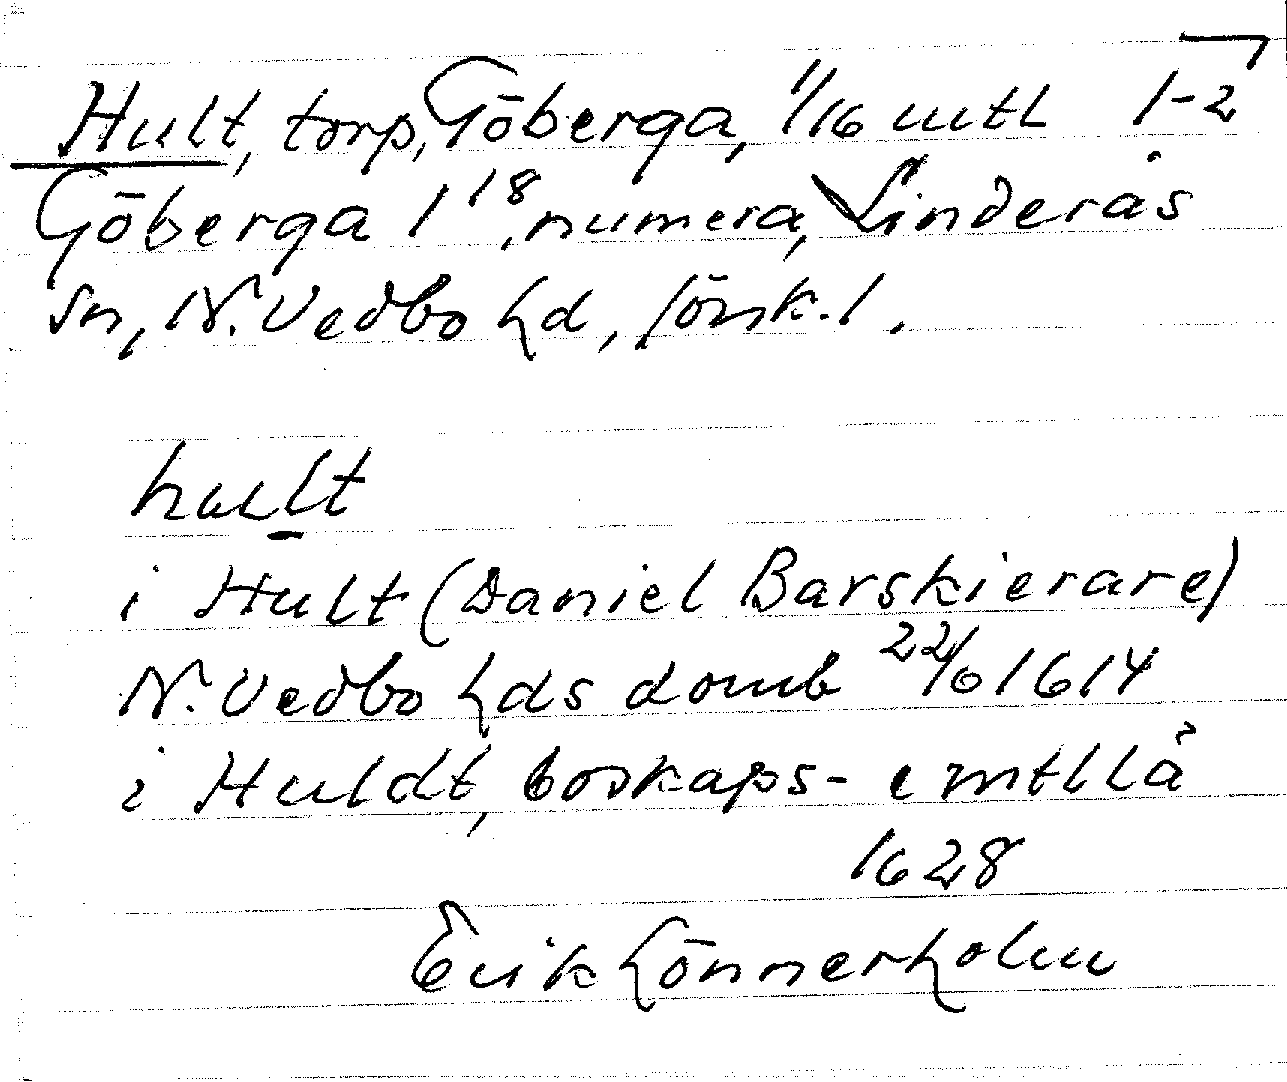 Hult, torp, Göberga, 1/16 mtl 1-2
Göberga 1 18, numera, Linderås
sn, N. Vedbo hd, Jönk. l.
hult
i Hult (Daniel Barskierare)
N. Vedbo hds domb 22/6 1614
i Huldt, boskaps- o mtllä
1628
Erik Lönnerholm